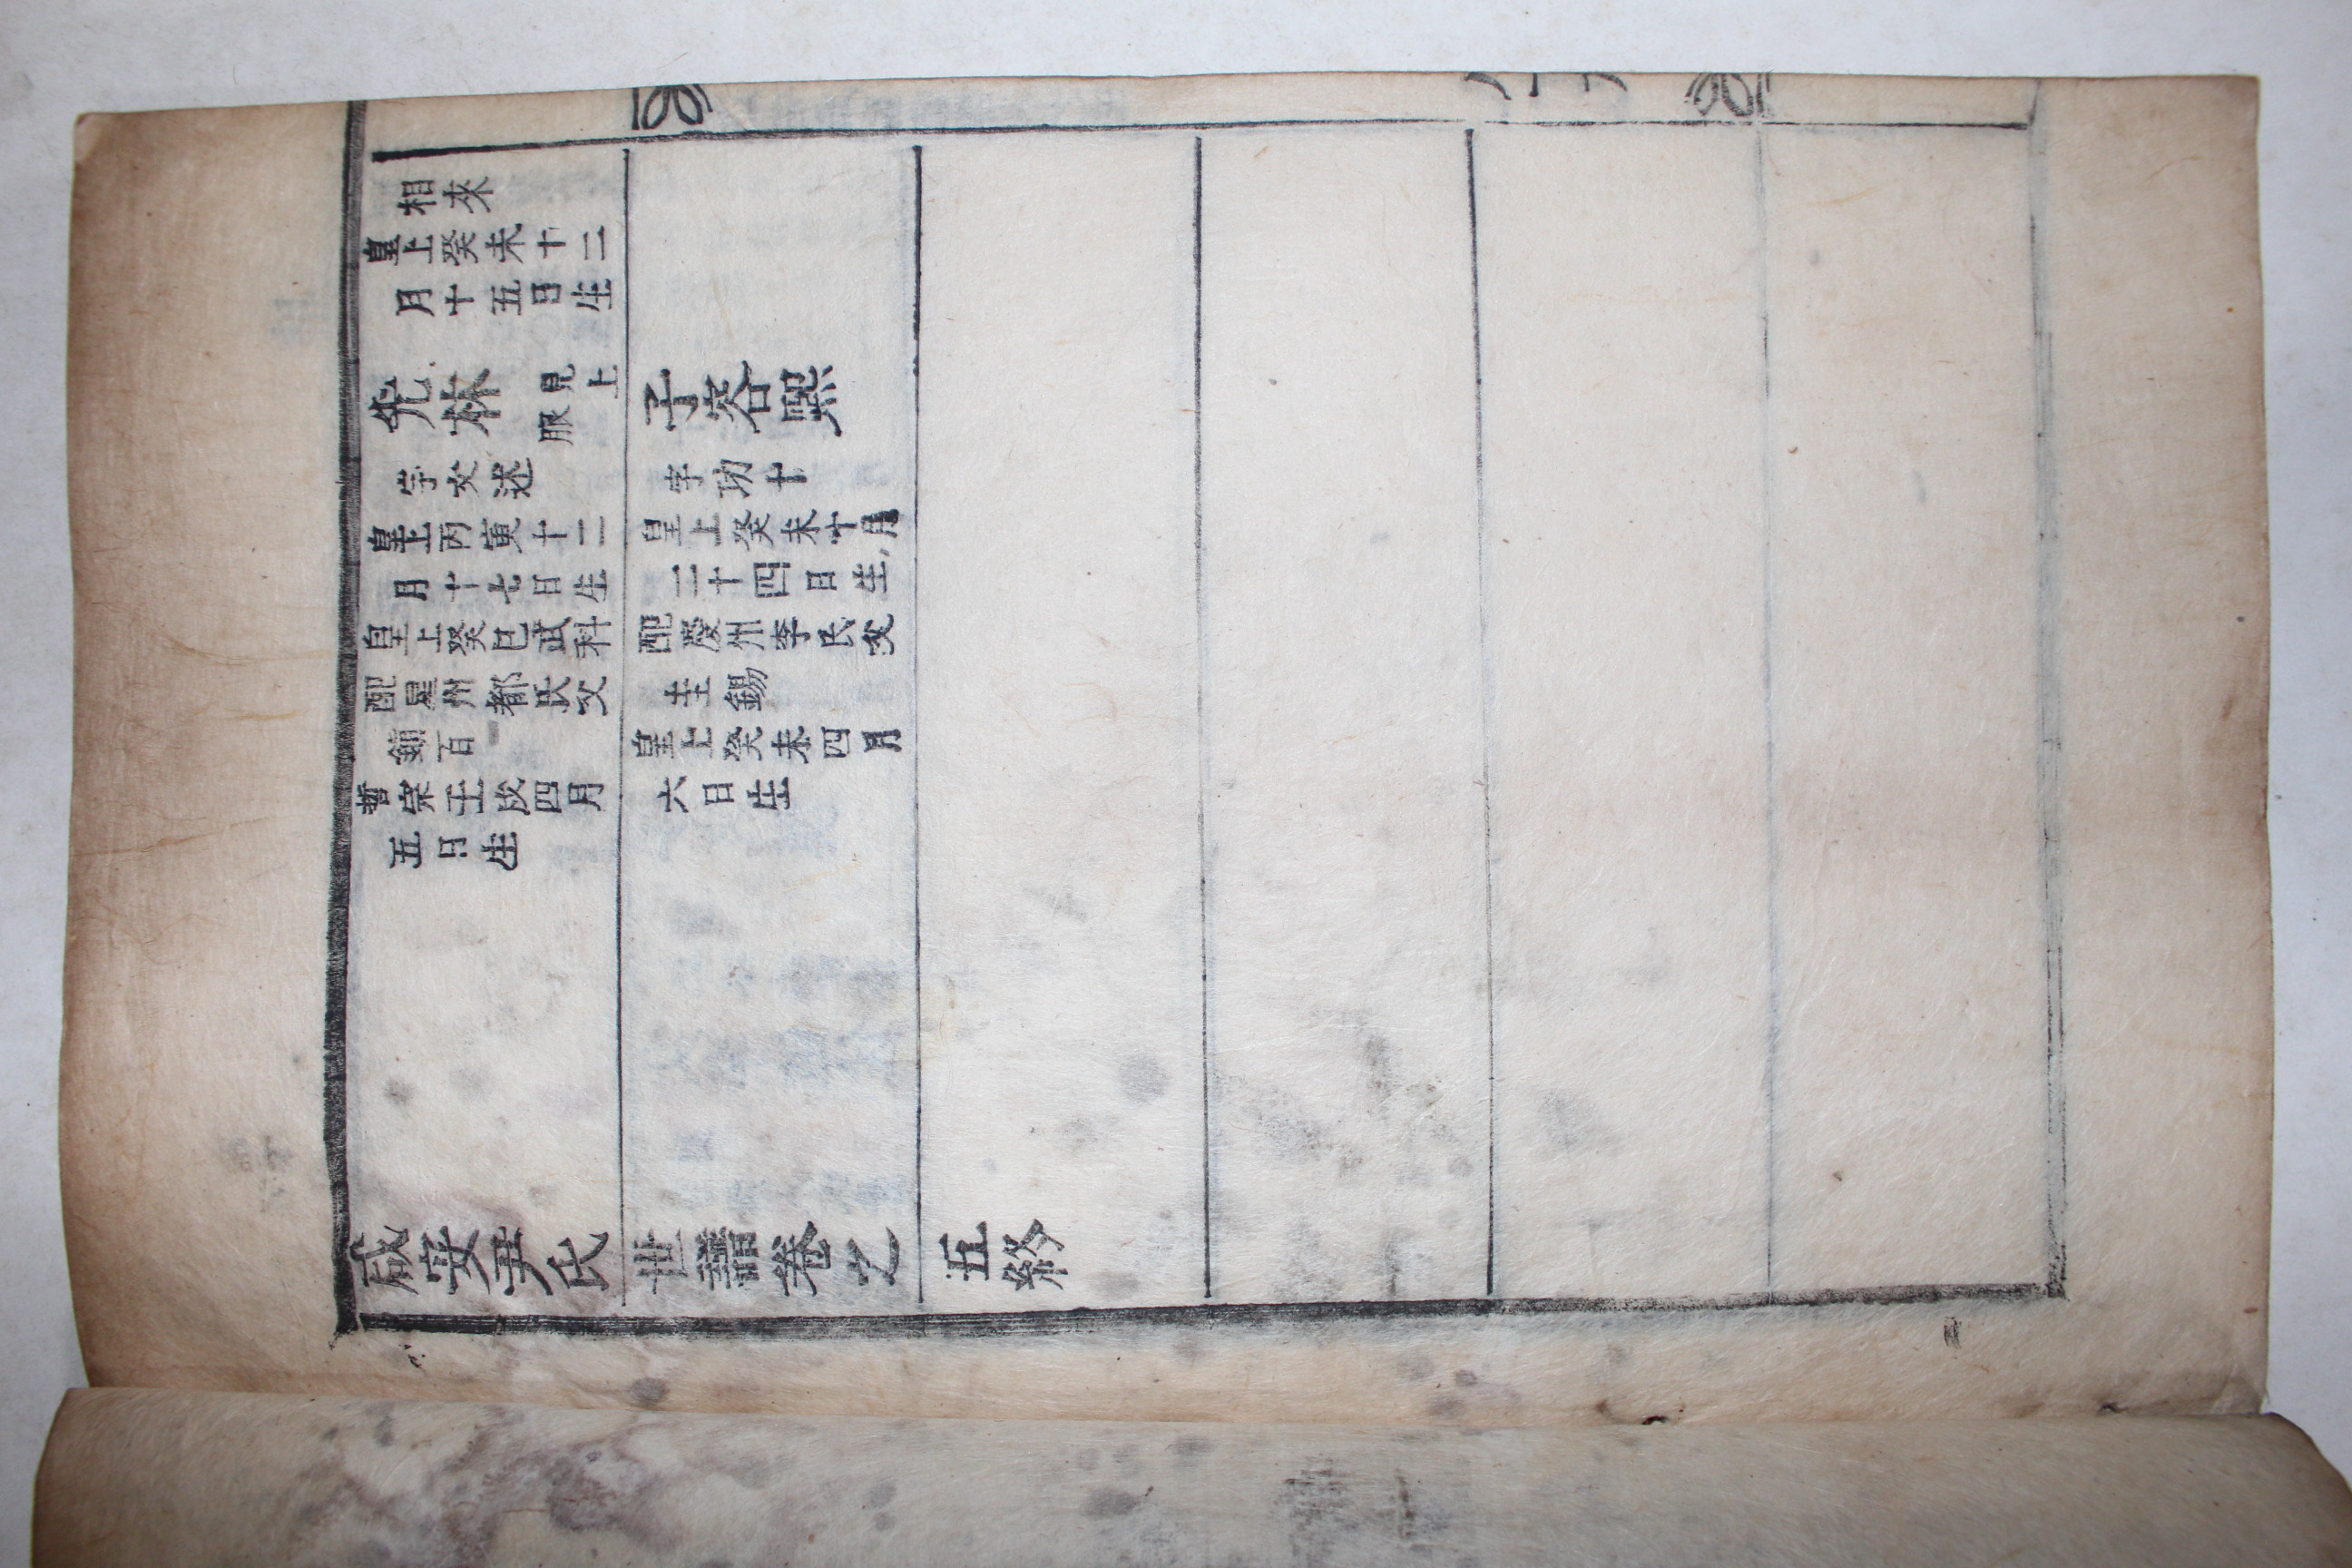 相來
皇上癸未十二
月十五日生
允林
見上
服
字文述
皇上丙寅十二
月十七日生
皇上癸巳武科
配星州都氏父
百
哲宗壬戌四月
五日生
子容熙
字功十
皇上癸未十月
二十四日生
配慶州李氏父
圭錫
皇上癸未四月
六日生
咸安尹氏世譜卷之五終